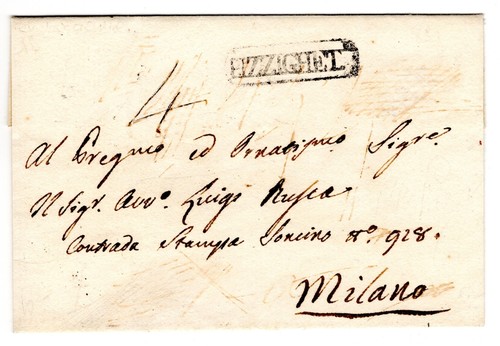 PIZZIGHET.
4
Al Pregmo ed Ornatismo Sigre
Il Sigr. Avvo. Luigi Rusca
Contrada Stampa Soncino No. 928.
Milano